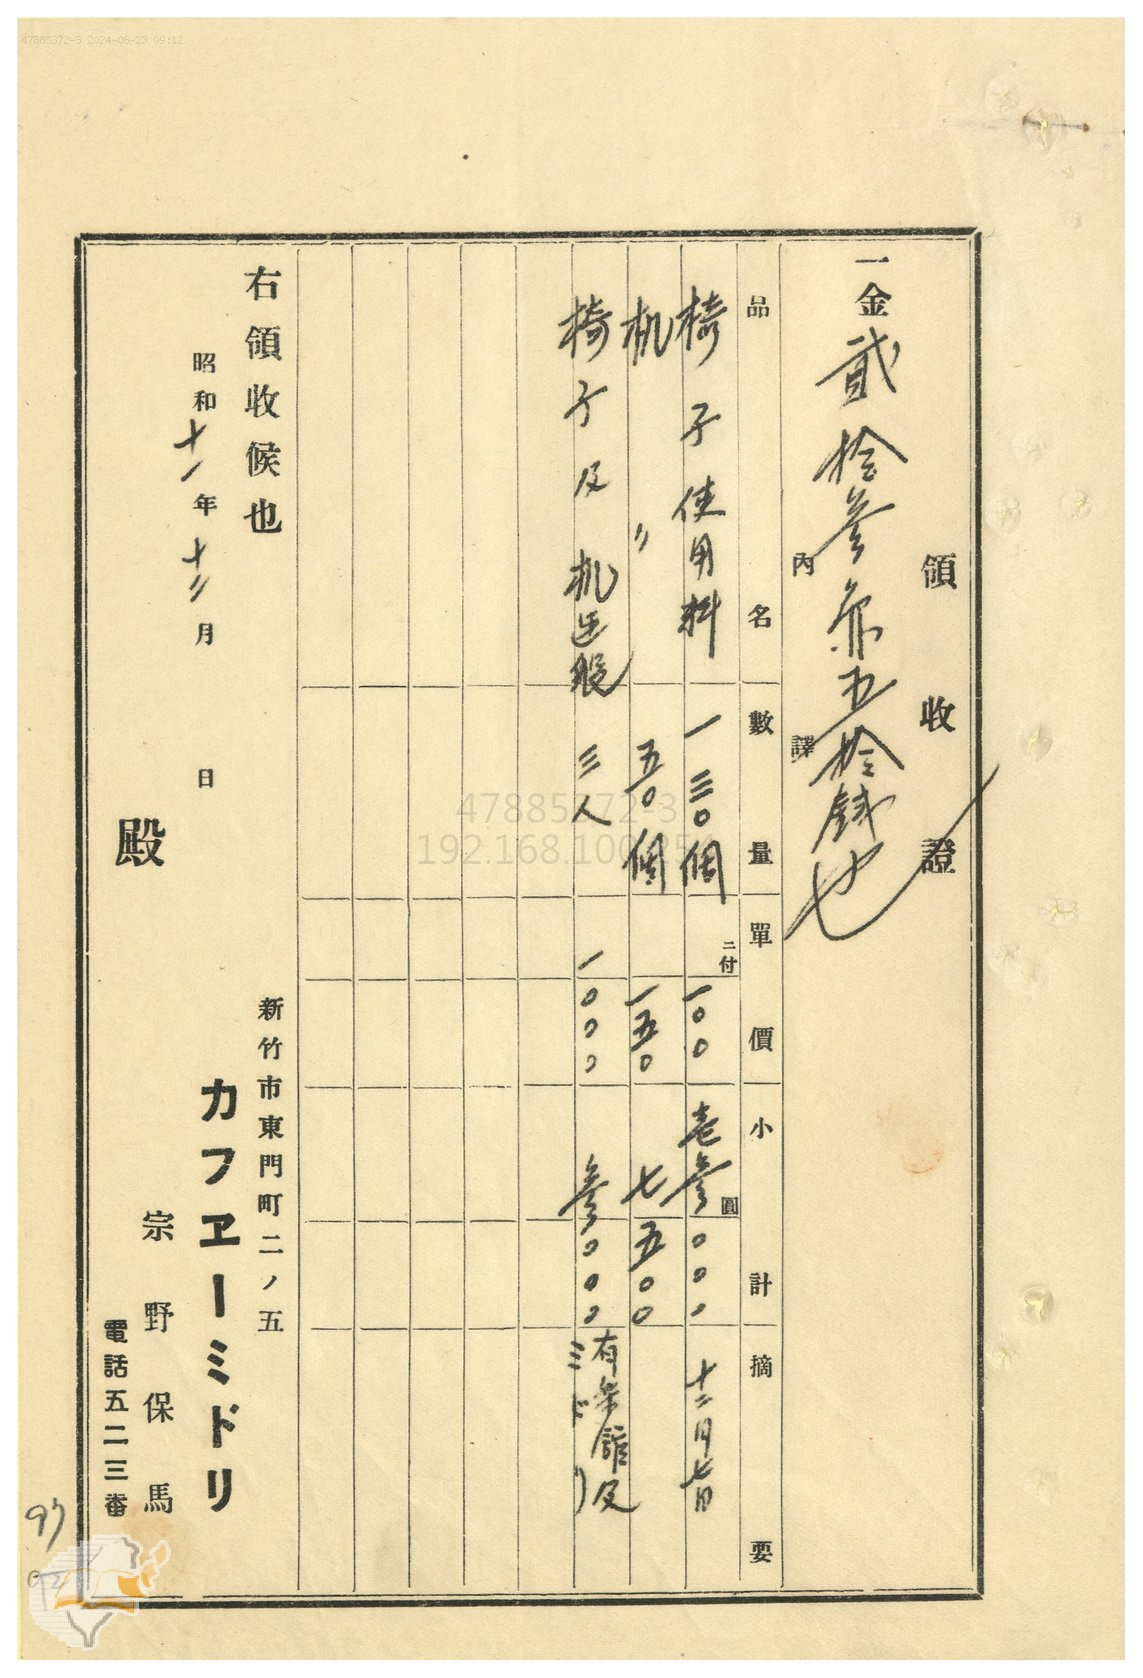 47885372-3 2024-06-23 09:12
領收證
一金貳拾參円五拾錢也
內譯
品名 數量 單價 小計 摘要
椅子使用料 一三〇個 ニ付 一〇〇 壱參圓〇〇〇 十二月七日
机〃 五〇個 一五〇 七五〇〇
椅子及机運搬 三人 一〇〇〇 參〇〇〇 有楽館及ミドリ
右領收候也
昭和十一年十二月 日
殿
新竹市東門町二ノ五
カフヱーミドリ
宗野保馬
電話五二三番
47885372-3
97